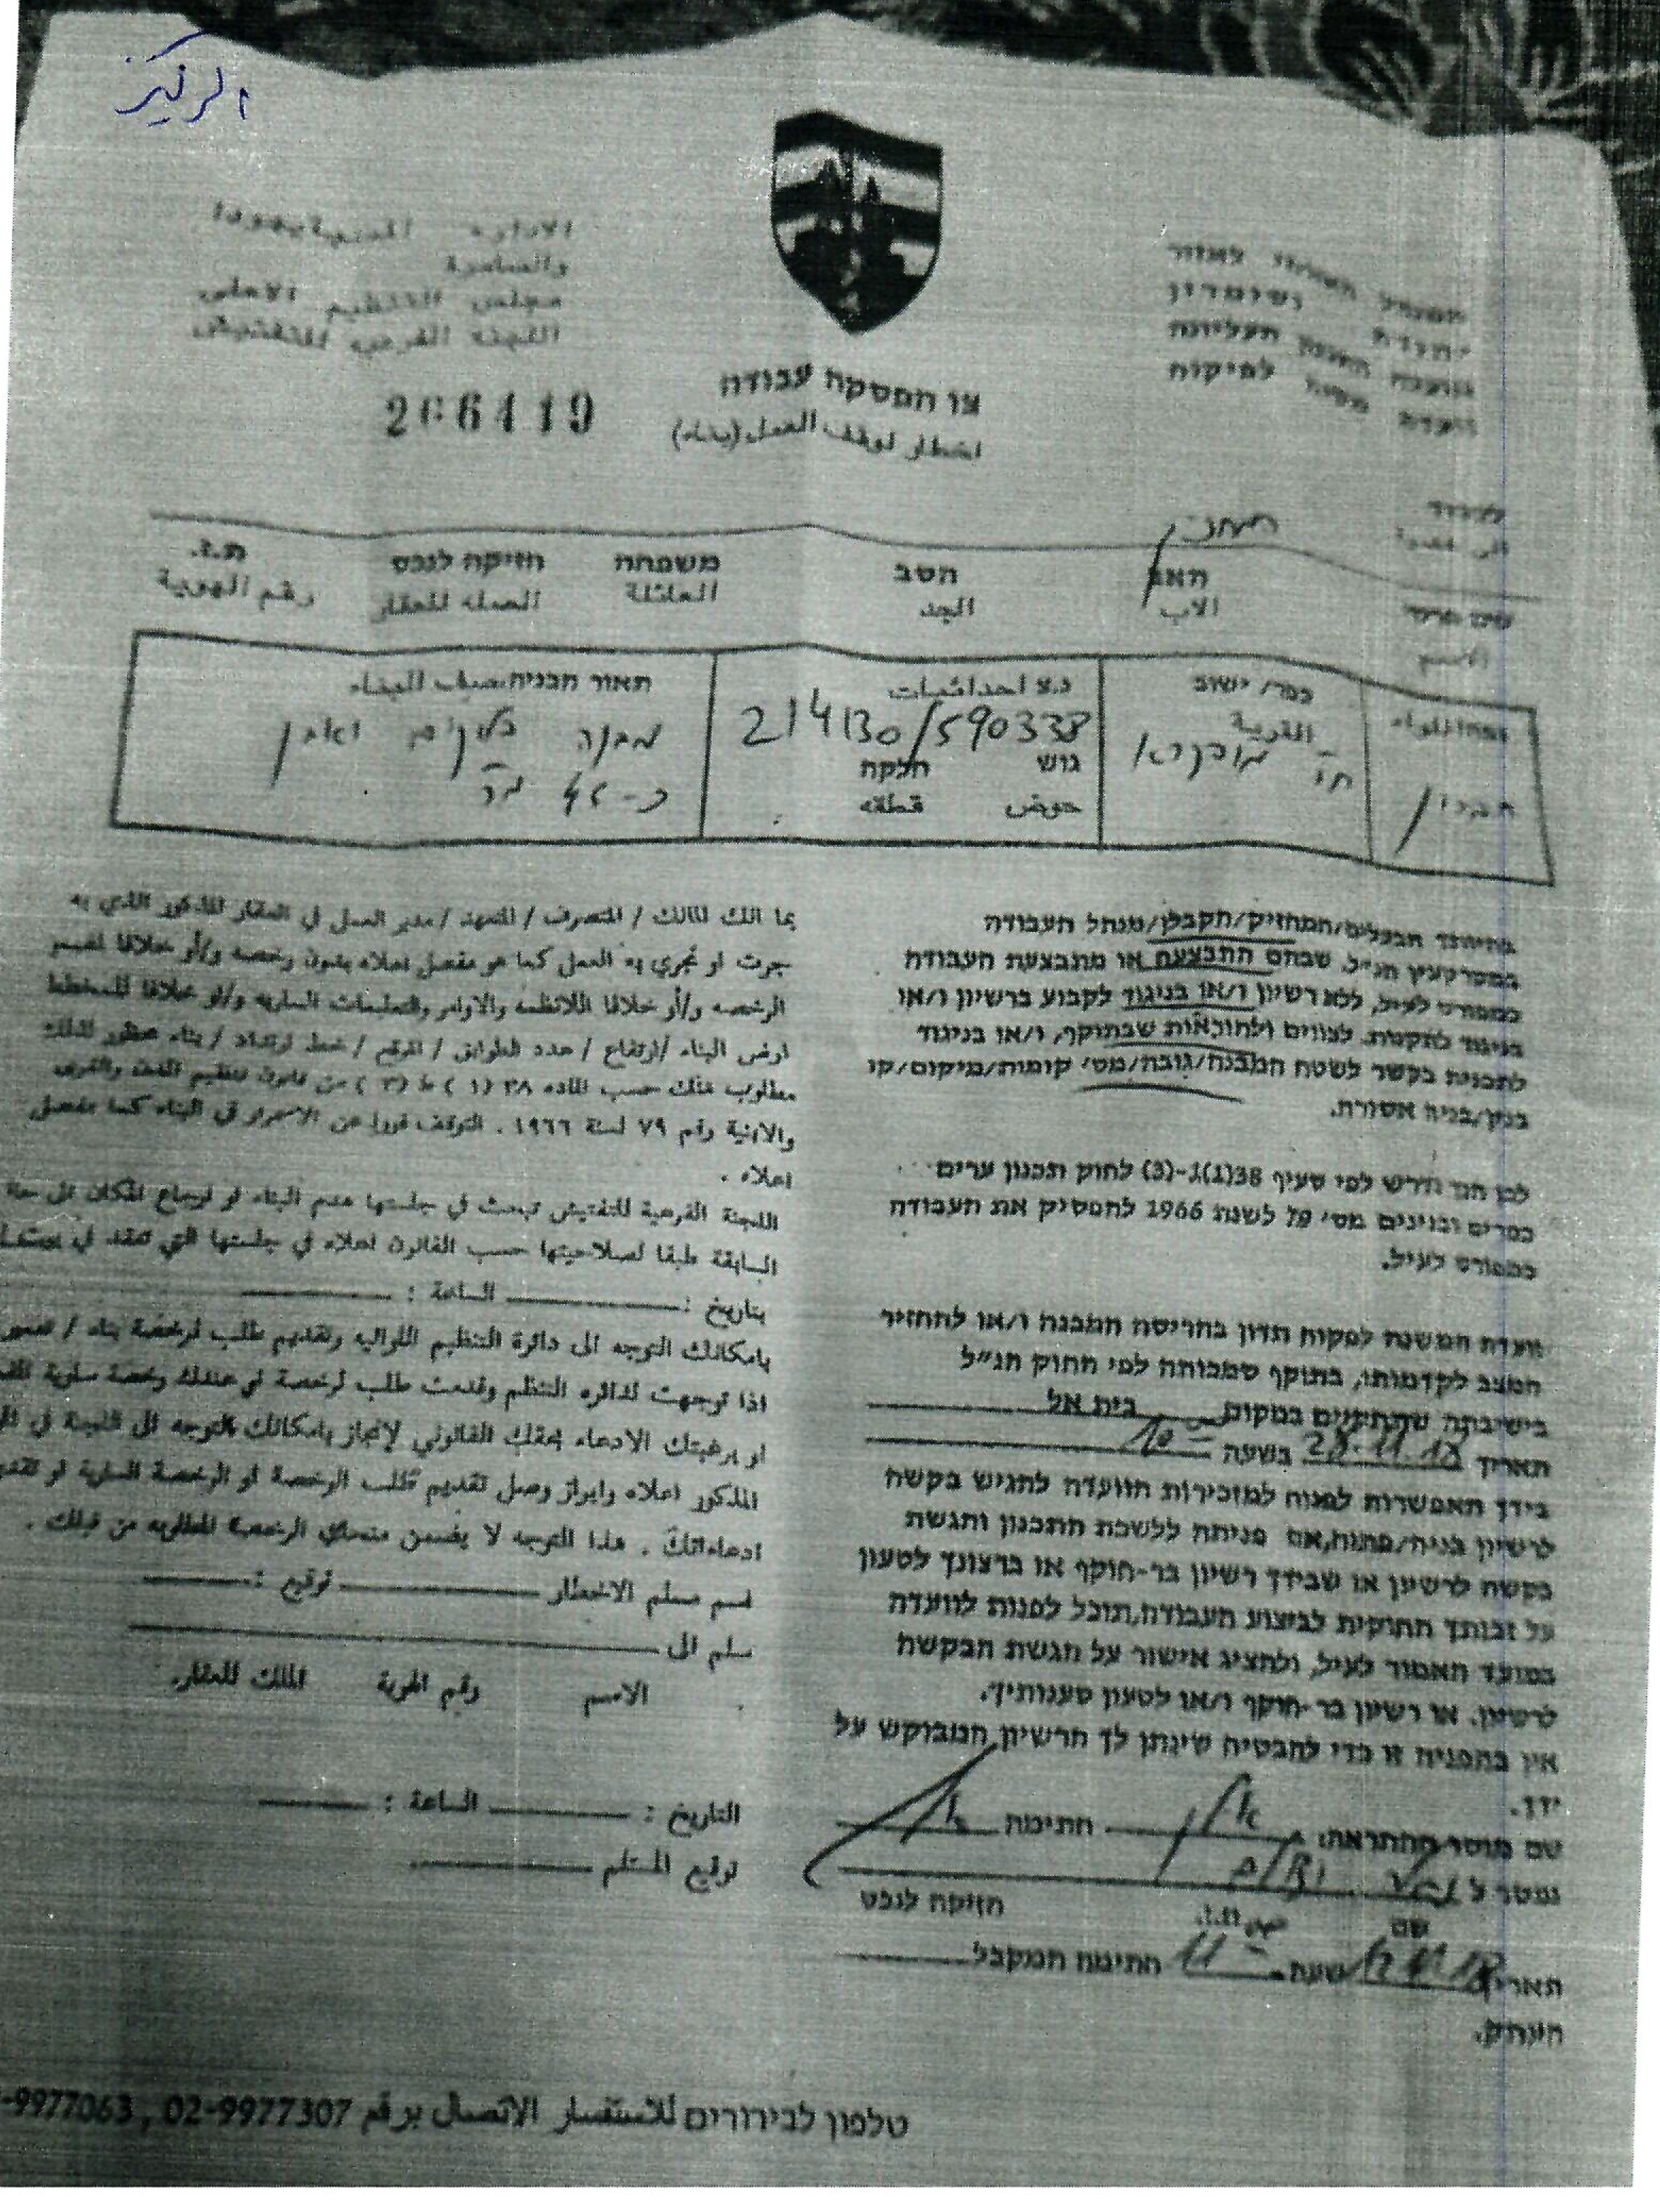 الركيز
המנהל האזרחי לאזור
יהודה ושומרון
מועצת התכנון העליונה
ועדת משנה לפיקוח
الادارة المدنية يهودا
والسامرة
مجلس التنظيم الاعلى
اللجنة الفرعية للتفتيش
צו הפסקת עבודה
اخطار لوقف العمل (بناء)
לכבוד
שם פרטי האב הסב משפחה חזיקה לנכס ת.ז.
الاسم الاب الجد العائلة الصله للعقار رقم الهوية
כפר/ ישוב נ.צ احداثيات תאור הבניה وصف البناء
القرية 214130/590338 מבנה
חברון גוש חלקה
حوض قطعه
בהיותך הבעלים/המחזיק/הקבלן/מנהל העבודה
במקרקעין הנ״ל, שבהם התבצעה או מתבצעת העבודה
כמפורט לעיל, ללא רשיון ו/או בניגוד לקבוע ברשיון ו/או
בניגוד לתקנות, לצווים ולהוראות שבתוקף, ו/או בניגוד
לתכנית בקשר לשטח המבנה/גובה/מס׳ קומות/מיקום/קו
בנין/בניה אסורה.
לכן הנך נדרש לפי סעיף 38(1)-(3) לחוק תכנון ערים
כפרים ובנינים מס׳ 79 לשנת 1966 להפסיק את העבודה
כמפורט לעיל.
ועדת המשנה לפקוח תדון בהריסת המבנה ו/או להחזיר
המצב לקדמותו, בתוקף סמכותה לפי החוק הנ״ל
בישיבתה שתתקיים במקום בית אל
תאריך 28.11.18 בשעה 10
בידך האפשרות לפנות למזכירות הוועדה להגיש בקשה
לרשיון בניה/פתוח, אם פניתה ללשכת התכנון והגשת
בקשה לרשיון או שבידך רשיון בר-תוקף או ברצונך לטעון
על זכותך החוקית לביצוע העבודה, תוכל לפנות לוועדה
במועד האמור לעיל, ולהציג אישור על הגשת הבקשה
לרשיון, או רשיון בר-תוקף ו/או לטעון טענותיך.
אין בהפניה זו כדי להבטיח שינתן לך הרשיון המבוקש על
ידך.
שם מוסר ההתראה: חתימה
נמסר ל
שם ת.ז. חזיקה לנכס
תאריך שעה 11 חתימת המקבל
העתק.
بما انك المالك / المتصرف / المتعهد / مدير العمل في العقار المذكور الذي به
جرت او تجري به العمل كما هو مفصل اعلاه بدون رخصه و/أو خلافا لقسم
الرخصه و/أو خلافا للانظمه والاوامر والتعليمات الساريه و/أو خلافا للمخطط
ارض البناء /ارتفاع / عدد الطوابق / الموقع / خط ارتداد / بناء محظور لذلك
مطلوب منك حسب الماده ٣٨ (١) ط (٣) من قانون تنظيم المدن والقرى
والابنية رقم ٧٩ لسنة ١٩٦٦ . التوقف فورا عن الاستمرار في البناء كما مفصل
اعلاه .
اللجنة الفرعية للتفتيش تبحث في جلستها هدم البناء او ارجاع المكان الى
السابقة طبقا لصلاحيتها حسب القانون اعلاه في جلستها التي تنعقد في
بتاريخ : الساعة :
بامكانك التوجه الى دائرة التنظيم اللوائيه وتقديم طلب لرخصة بناء /
اذا توجهت لدائره التنظم وقدمت طلب لرخصة او عندك رخصة سارية
او برغبتك الادعاء بحقك القانوني لإنجاز بامكانك التوجه الى اللجنة في
المذكور اعلاه وابراز وصل تقديم طلب الرخصة او الرخصة السارية او
ادعاءاتك . هذا التوجه لا يضمن منحك الرخصة المطلوبه من قبلك .
اسم مسلم الاخطار توقيع :
سلم الى
الاسم رقم الهوية المالك للعقار.
التاريخ : الساعة :
توقيع المستلم
טלפון לבירורים للاستفسار الاتصال برقم 02-9977307 , -9977063